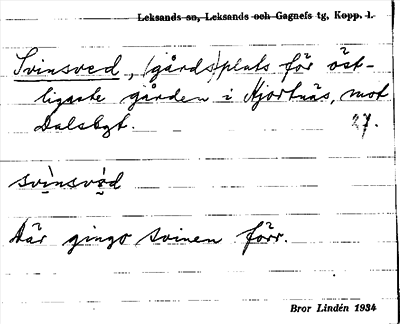 Leksands sn, Leksands och Gagnefs tg, Kopp. l.
Svinsved, (gårds)plats för öst-
ligaste gården i Hjortnäs, mot
Dalsbyt. 27.
svìnsvǝ̀d
Där gingo svinen förr.
Bror Lindén 1934